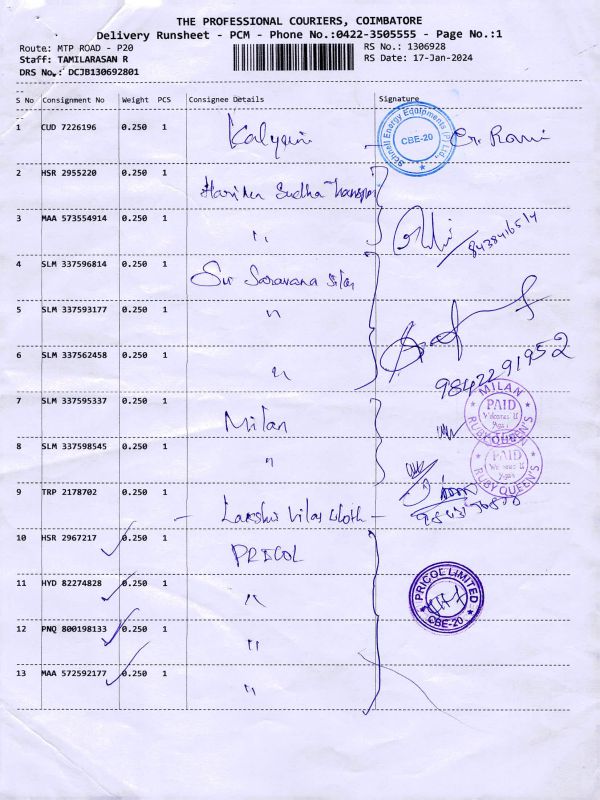 THE PROFESSIONAL COURIERS, COIMBATORE
Delivery Runsheet - PCM - Phone No.:0422-3505555 - Page No.:1
Route: MTP ROAD - P20
RS No.: 1306928
Staff: TAMILARASAN R
RS Date: 17-Jan-2024
DRS No.: DCJB130692801
S No Consignment No Weight PCS Consignee Details Signature
1 CUD 7226196 0.250 1 Kalyani
Schnell Energy Equipments (P) Ltd., CBE-20
Er. Rami
2 HSR 2955220 0.250 1 Sudha Transport
3 MAA 573554914 0.250 1 "
8438416514
4 SLM 337596814 0.250 1 Sri Saravana silas
5 SLM 337593177 0.250 1 "
6 SLM 337562458 0.250 1 "
9842291952
7 SLM 337595337 0.250 1 Milan
MILAN PAID RUBY QUEEN'S
8 SLM 338598545 0.250 1 "
PAID RUBY QUEEN'S
9 TRP 2178702 0.250 1 Lakshmi Vilas Cloth
10 HSR 2967217 0.250 1 PRICOL
11 HYD 82274828 0.250 1 "
PRICOL LIMITED CBE-20
12 PNQ 800198133 0.250 1 "
13 MAA 572592177 0.250 1 "